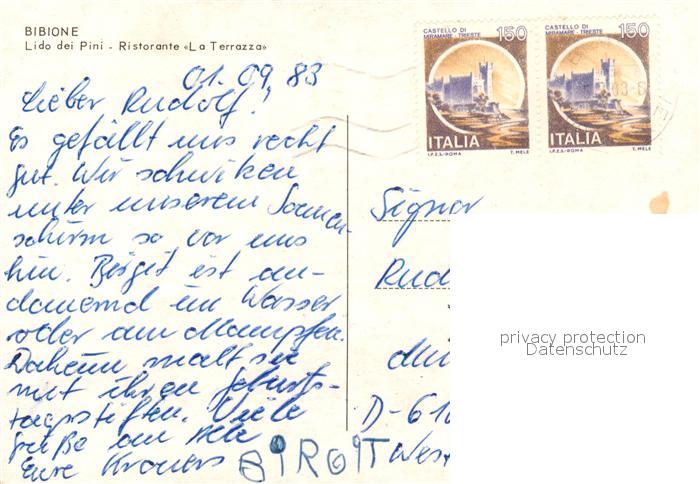 BIBIONE
Lido dei Pini - Ristorante «La Terrazza»
CASTELLO DI
MIRAMARE - TRIESTE
150
ITALIA
I.P.Z.S.-ROMA T. MELE
CASTELLO DI
MIRAMARE - TRIESTE
150
ITALIA
I.P.Z.S.-ROMA T. MELE
01.09.83
Lieber Rudolf!
Es gefällt uns recht
gut. Wir schwitzen
unter unserem Sonnen-
schirm so vor uns
hin. Birgit ist an-
dauernd im Wasser
oder am Mampfen.
Daheim malt sie
mit ihren Geburts-
tagsstiften. Viele
Grüße an alle
Eure Kroners
BIRGIT
Signor
Rud
D-61
West
privacy protection
Datenschutz